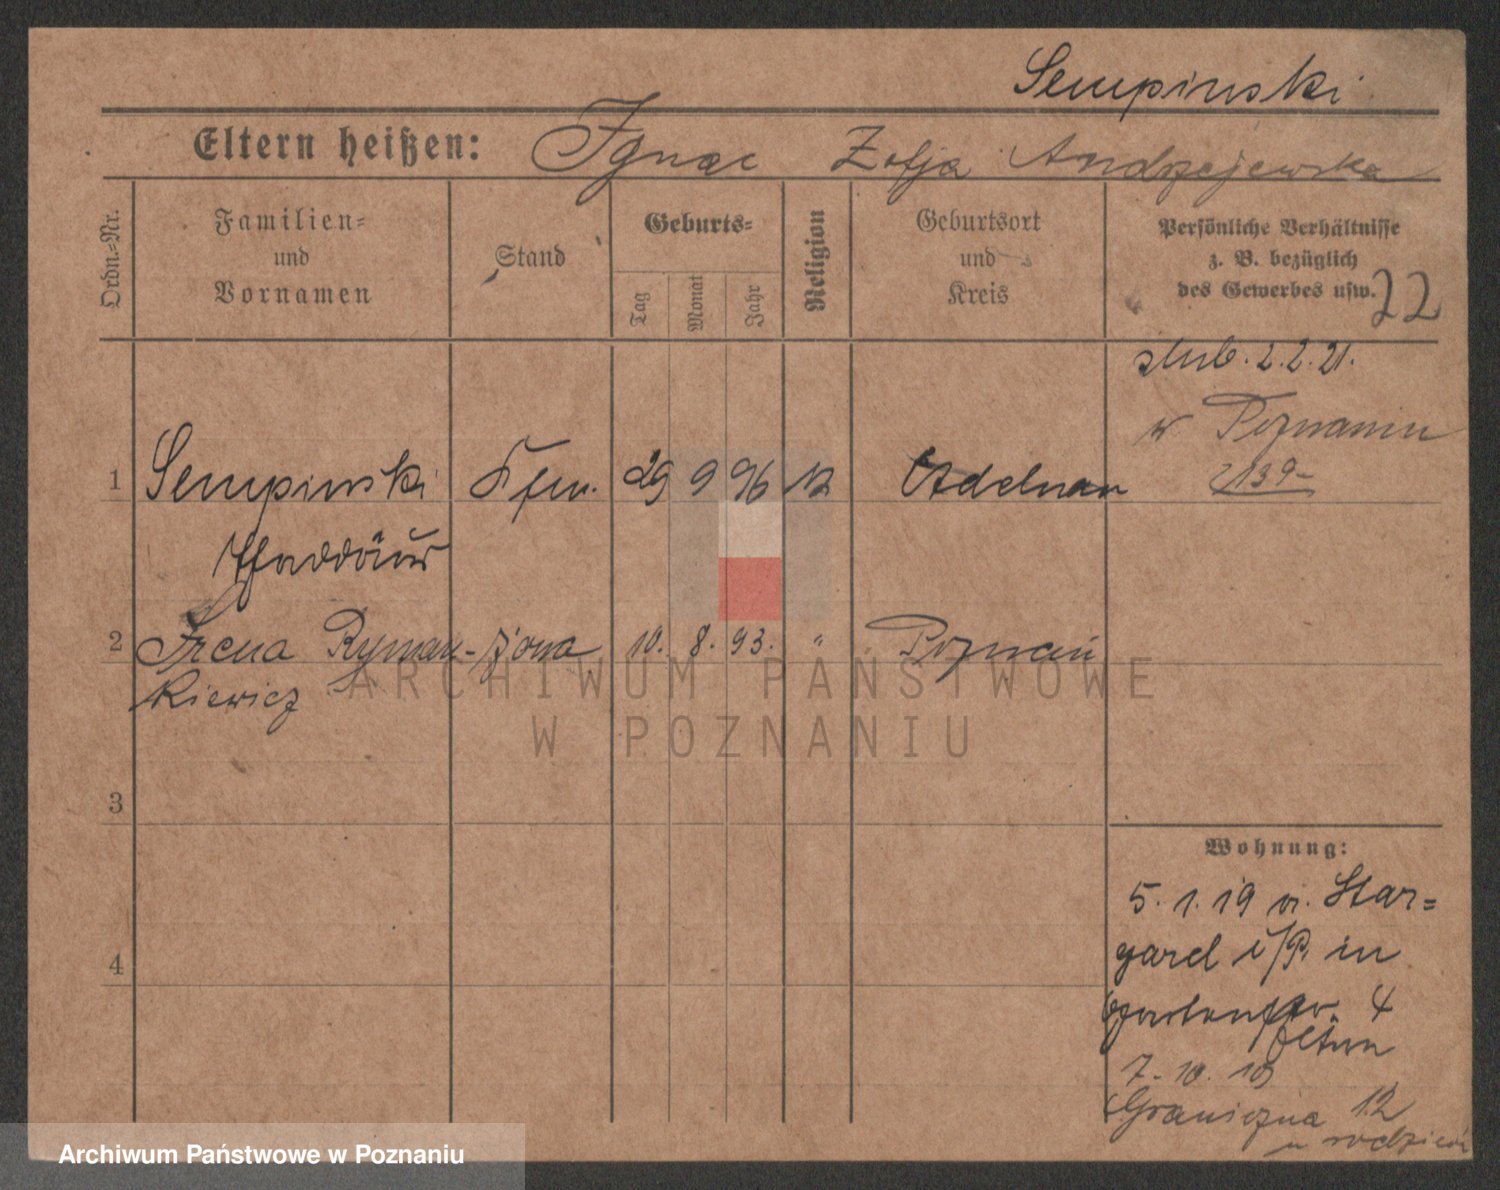 Sempinski
Eltern heißen: Ignac Zofja Andrzejewska
Ordn.-Nr.
Familien-
und
Vornamen
Stand
Geburts-
Tag
Monat
Jahr
Religion
Geburtsort
und
Kreis
Persönliche Verhältnisse
z. B. bezüglich
des Gewerbes usw.
22
ślub. 2.2.21.
w Poznaniu
139
1 Sempinski Kfm. 29 9 96 Adelnau
Thaddäus
2 Irena Ryman- żona 10. 8. 93. " Poznań
kiewicz
3
4
Wohnung:
5.1.19 v. Star=
gard i/P. in
Gartenstr. 4
Eltern
7.10.19
Graniczna 12
u rodziców
ARCHIWUM PAŃSTWOWE
W POZNANIU
Archiwum Państwowe w Poznaniu